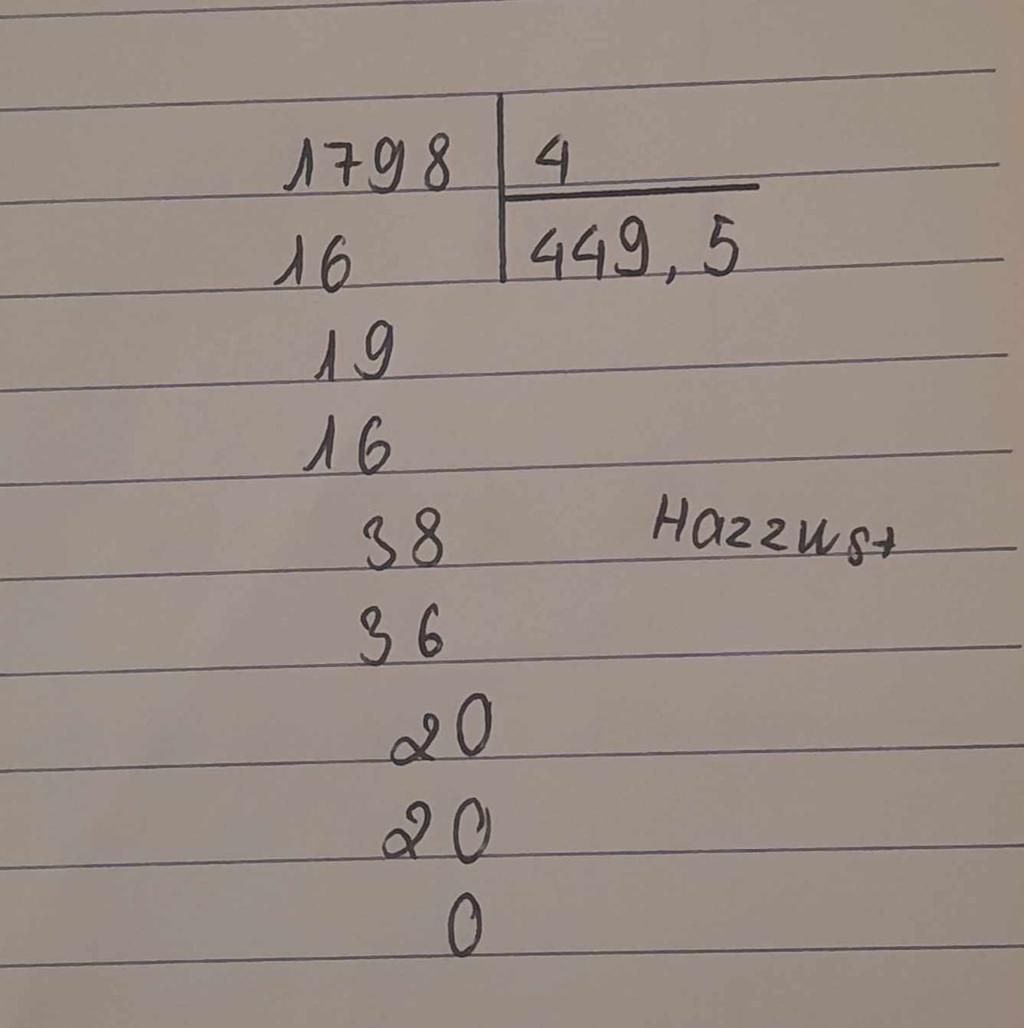 1798 4
16 449,5
19
16
38 Hazzust
36
20
20
0